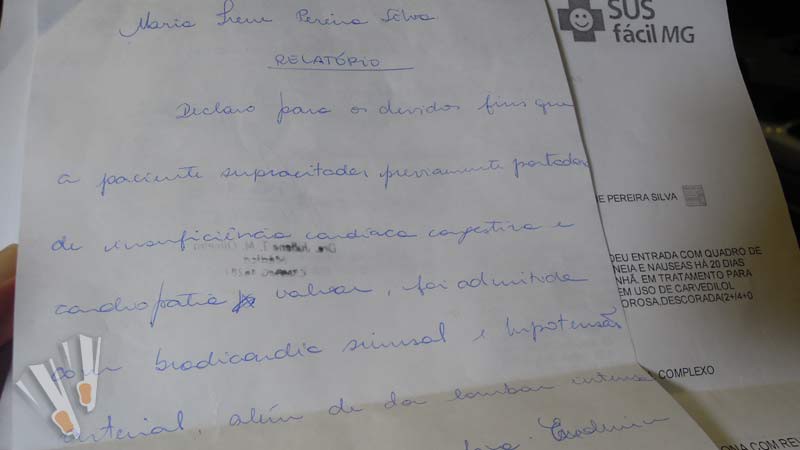 Maria Irene Pereira Silva
RELATÓRIO
Declaro para os devidos fins que
a paciente supracitada, previamente portadora
de insuficiência cardíaca congestiva e
cardiopatia valvar, foi admitida
com bradicardia sinusal e hipotensão
arterial, além de dor lombar intensa
SUS
fácil MG
E PEREIRA SILVA
DEU ENTRADA COM QUADRO DE
NEIA E NAUSEAS HÁ 20 DIAS
NHÃ. EM TRATAMENTO PARA
EM USO DE CARVEDILOL
OROSA,DESCORADA(2+/4+0
COMPLEXO
ONA COM REV